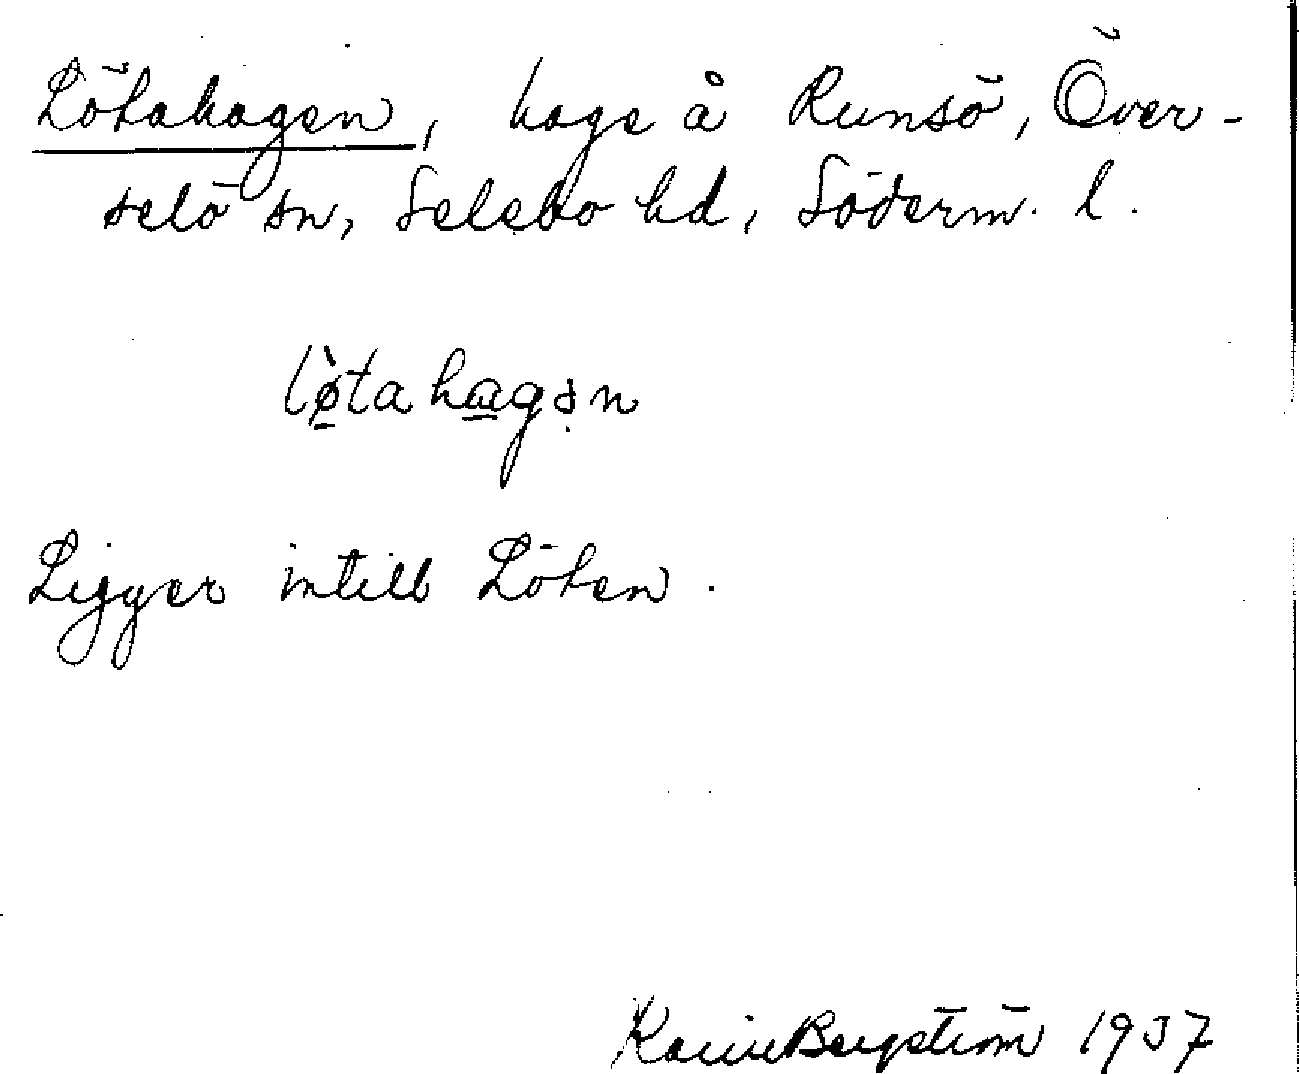 Lötahagen, hage å Runsö, Över-
selö sn, Selebo hd, Söderm. l.
lø̀tahagən
Ligger intill Löten.
Karin Bergström 1937